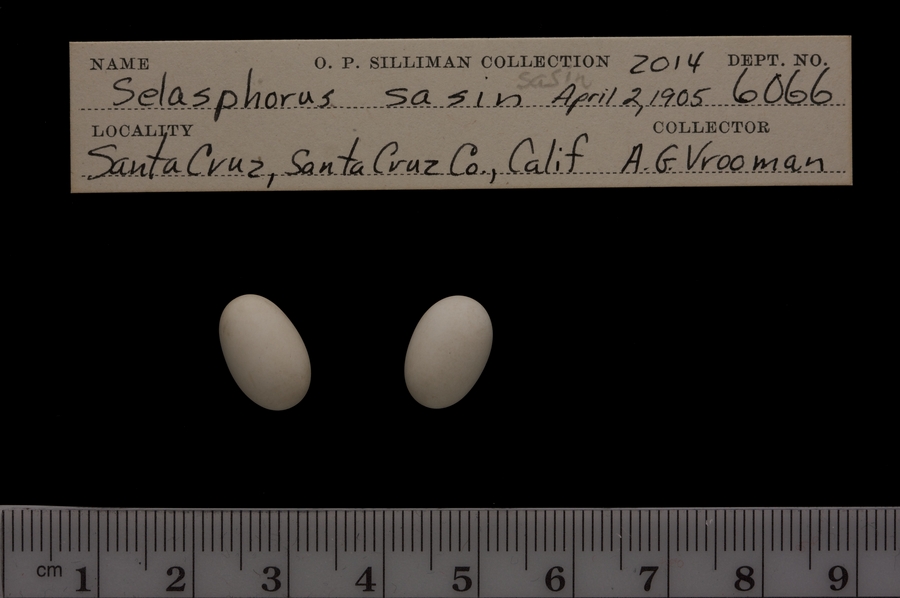 NAME O. P. SILLIMAN COLLECTION 2014 DEPT. NO.
sasin
Selasphorus sasin April 2, 1905 6066
LOCALITY COLLECTOR
Santa Cruz, Santa Cruz Co., Calif A. G. Vrooman
cm 1 2 3 4 5 6 7 8 9